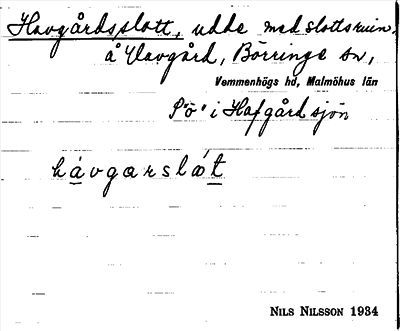 Havgårdsslott, udde med slottsruin.
å Havgård, Börringe sn,
Vemmenhögs hd, Malmöhus län
På "ö" i Hafgårdsjön
hávgarslót
NILS NILSSON 1934